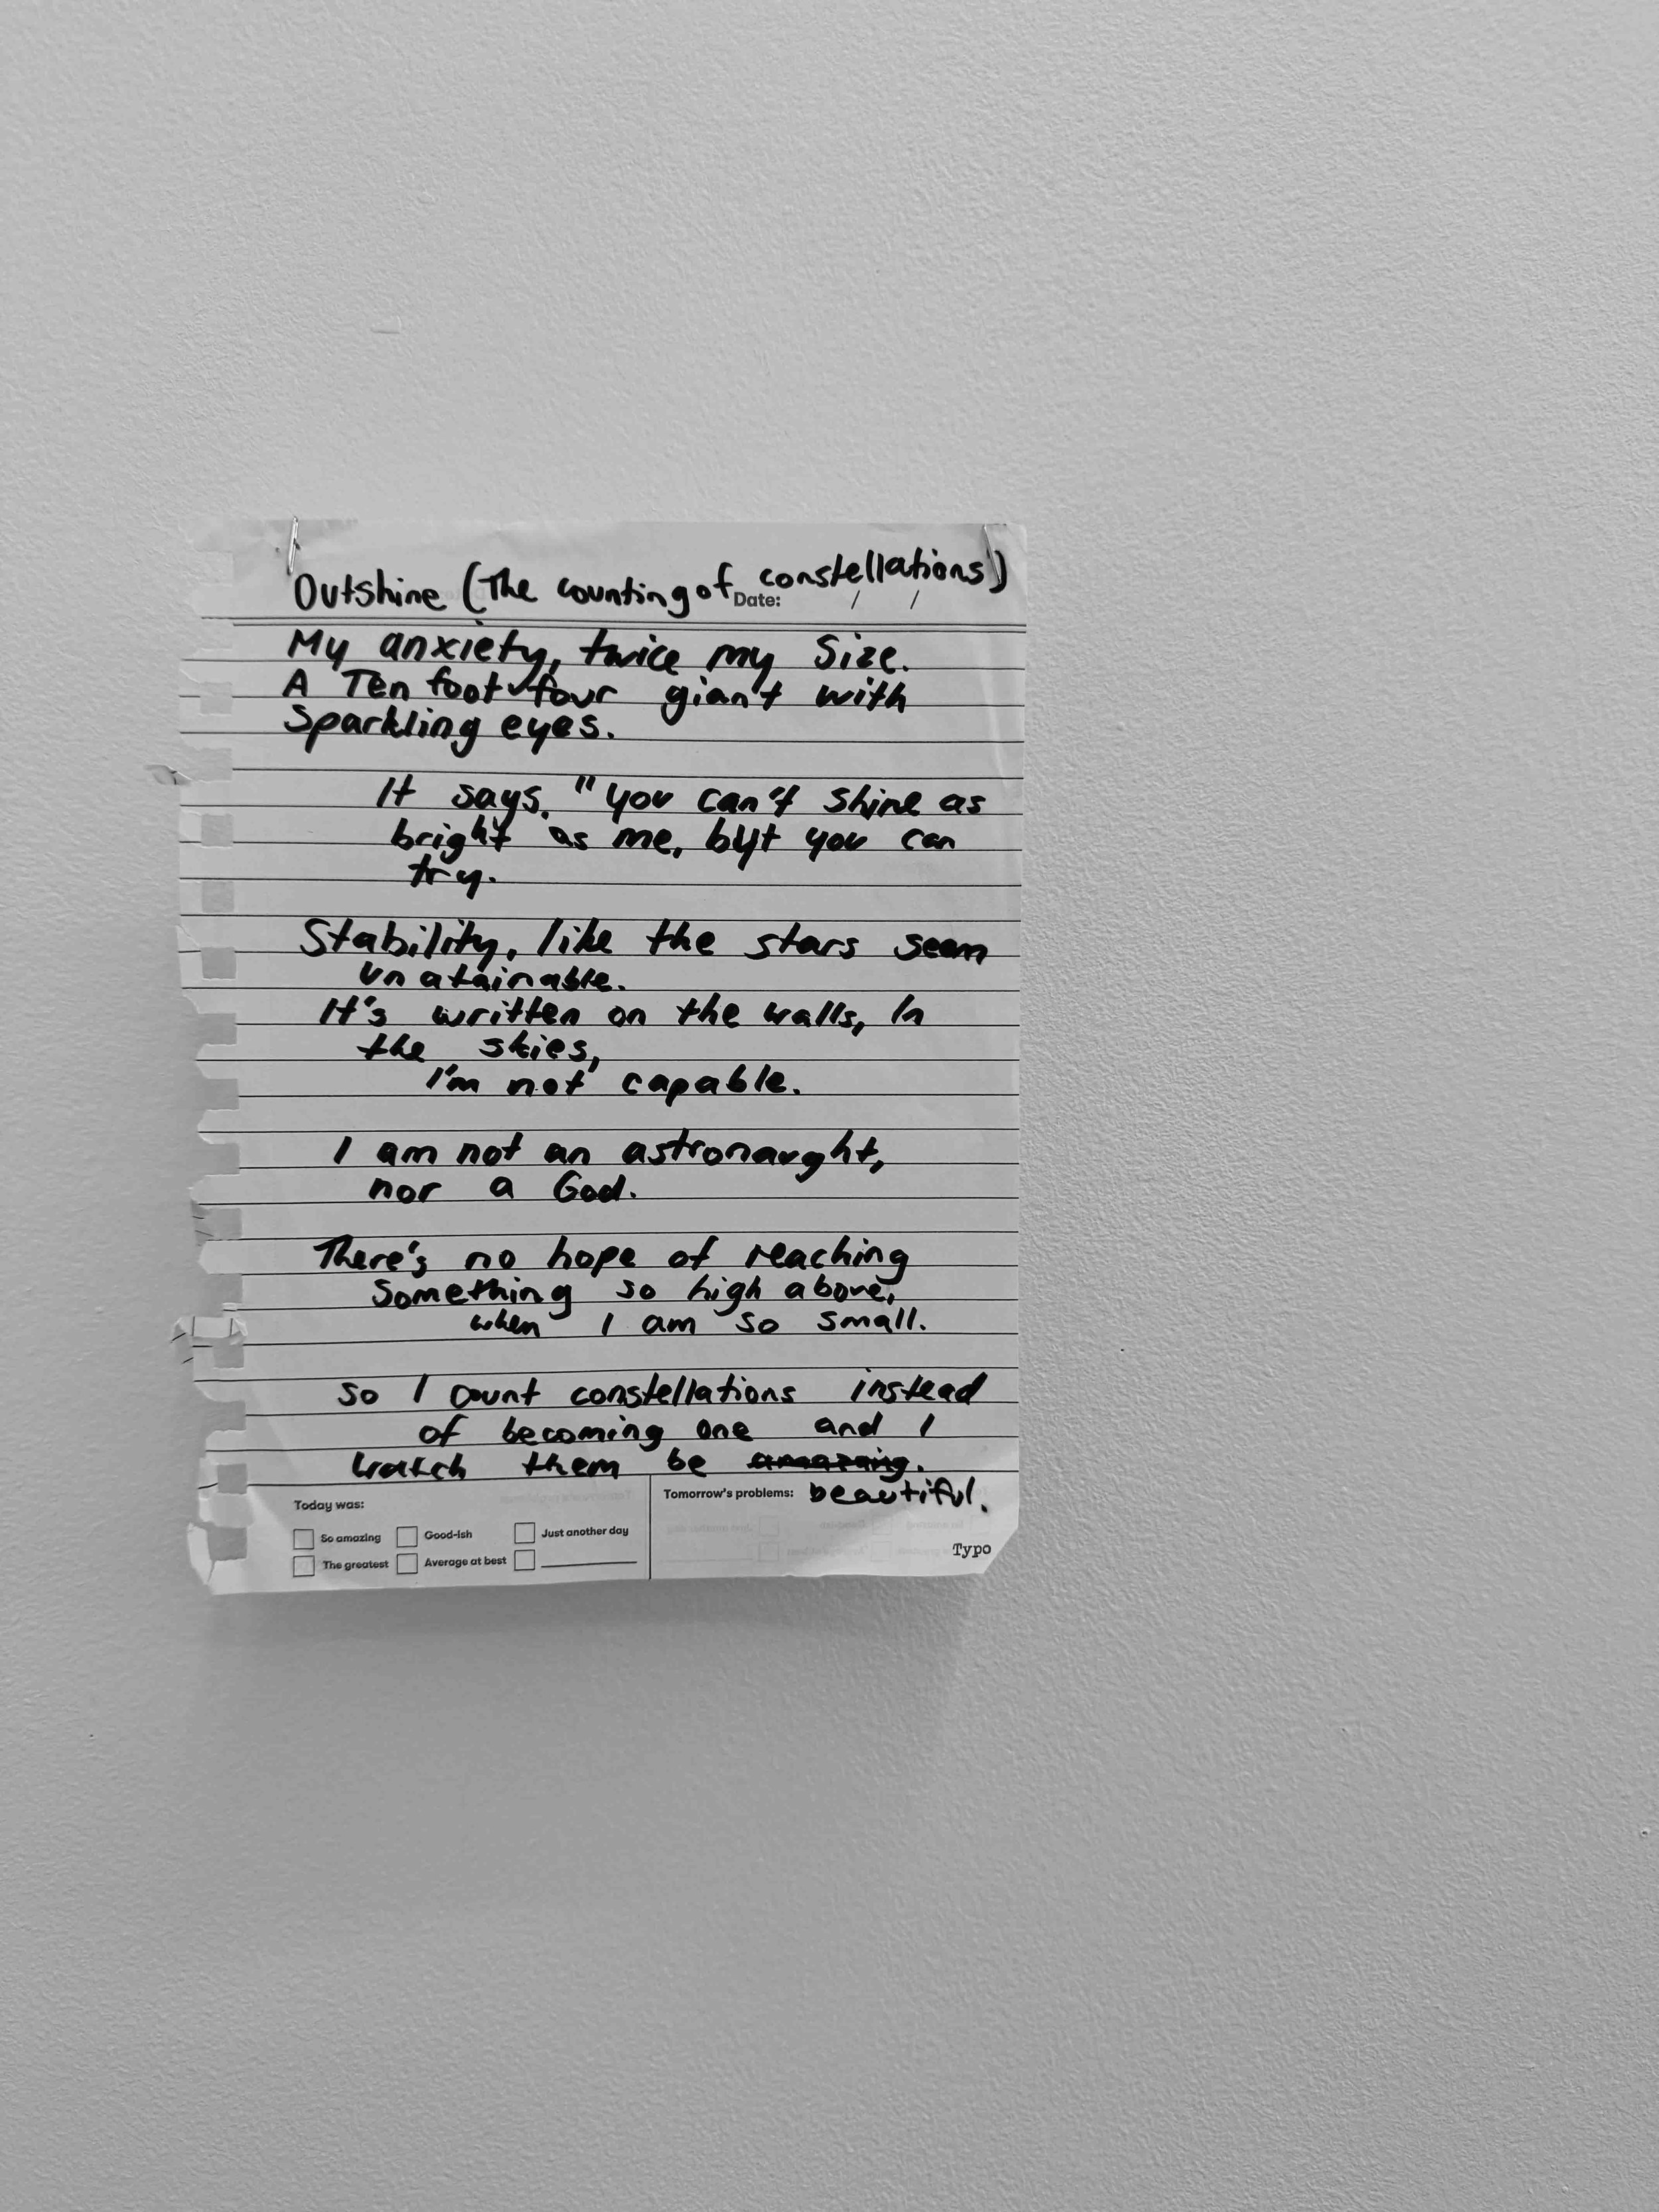 Outshine (The counting of constellations)
Date: / /
My anxiety, twice my size.
A Ten foot four giant with
sparkling eyes.
It says, "you can't shine as
bright as me, but you can
try.
Stability, like the stars seem
unatainable.
It's written on the walls, In
the skies,
I'm not capable.
I am not an astronaught,
nor a God.
There's no hope of reaching
something so high above,
when I am so small.
so I count constellations instead
of becoming one and I
watch them be amazing.
beautiful.
Today was:
Tomorrow's problems:
So amazing Good-ish Just another day
The greatest Average at best
Typo